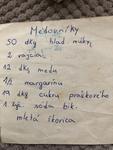 Medovníky
50 dkg hlad. múky
2 vajcia
12 dkg medu
1/2 margarínu
14 dkg cukru práškového
1 kg. sóda bik.
mletá škorica